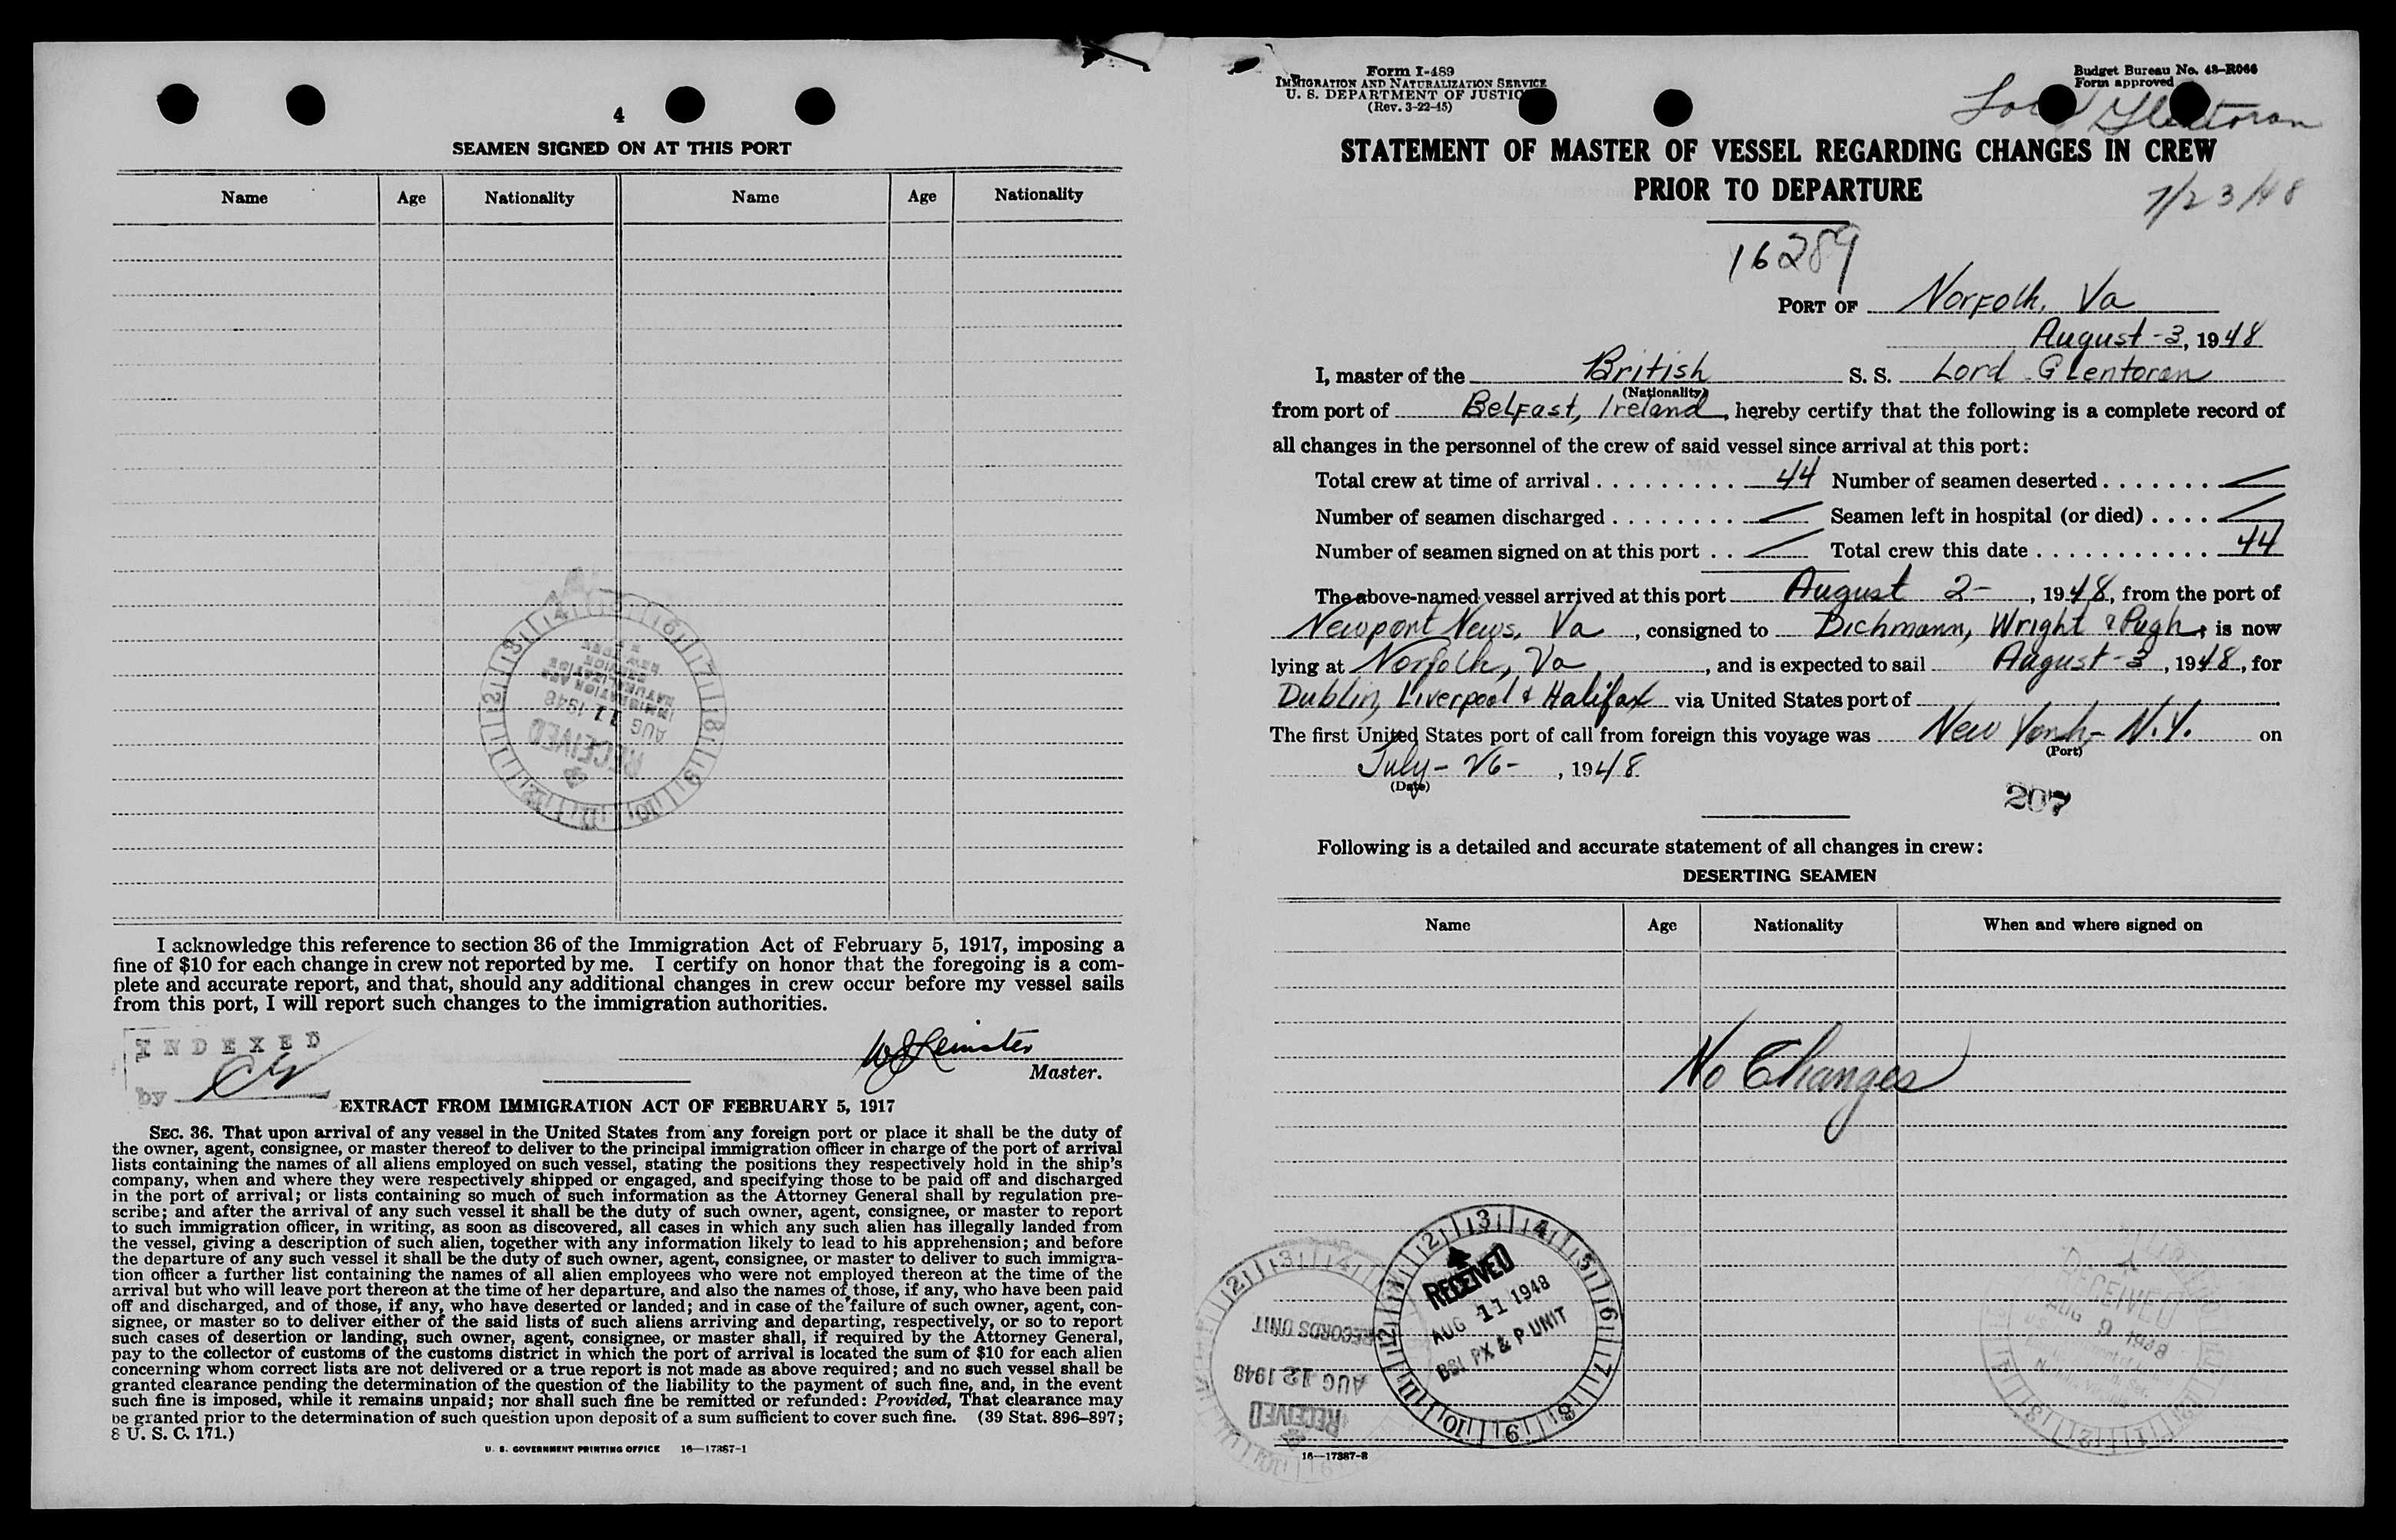 4
SEAMEN SIGNED ON AT THIS PORT
Name Age Nationality Name Age Nationality
RECEIVED
AUG 11 1948
IMMIGRATION AND
NATURALIZATION
SERVICE
NEW YORK
I acknowledge this reference to section 36 of the Immigration Act of February 5, 1917, imposing a
fine of $10 for each change in crew not reported by me. I certify on honor that the foregoing is a com-
plete and accurate report, and that, should any additional changes in crew occur before my vessel sails
from this port, I will report such changes to the immigration authorities.
INDEXED
by
Master.
EXTRACT FROM IMMIGRATION ACT OF FEBRUARY 5, 1917
SEC. 36. That upon arrival of any vessel in the United States from any foreign port or place it shall be the duty of
the owner, agent, consignee, or master thereof to deliver to the principal immigration officer in charge of the port of arrival
lists containing the names of all aliens employed on such vessel, stating the positions they respectively hold in the ship's
company, when and where they were respectively shipped or engaged, and specifying those to be paid off and discharged
in the port of arrival; or lists containing so much of such information as the Attorney General shall by regulation pre-
scribe; and after the arrival of any such vessel it shall be the duty of such owner, agent, consignee, or master to report
to such immigration officer, in writing, as soon as discovered, all cases in which any such alien has illegally landed from
the vessel, giving a description of such alien, together with any information likely to lead to his apprehension; and before
the departure of any such vessel it shall be the duty of such owner, agent, consignee, or master to deliver to such immigra-
tion officer a further list containing the names of all alien employees who were not employed thereon at the time of the
arrival but who will leave port thereon at the time of her departure, and also the names of those, if any, who have been paid
off and discharged, and of those, if any, who have deserted or landed; and in case of the failure of such owner, agent, con-
signee, or master so to deliver either of the said lists of such aliens arriving and departing, respectively, or so to report
such cases of desertion or landing, such owner, agent, consignee, or master shall, if required by the Attorney General,
pay to the collector of customs of the customs district in which the port of arrival is located the sum of $10 for each alien
concerning whom correct lists are not delivered or a true report is not made as above required; and no such vessel shall be
granted clearance pending the determination of the question of the liability to the payment of such fine, and, in the event
such fine is imposed, while it remains unpaid; nor shall such fine be remitted or refunded: Provided, That clearance may
be granted prior to the determination of such question upon deposit of a sum sufficient to cover such fine. (39 Stat. 896-897;
8 U. S. C. 171.)
U. S. GOVERNMENT PRINTING OFFICE 16—17387-1
Form I-489
IMMIGRATION AND NATURALIZATION SERVICE
U. S. DEPARTMENT OF JUSTICE
(Rev. 3-22-45)
Budget Bureau No. 43-R066
Form approved
Lord Glentoran
STATEMENT OF MASTER OF VESSEL REGARDING CHANGES IN CREW
PRIOR TO DEPARTURE
7/23/48
16289
PORT OF Norfolk, Va
August -3, 1948
I, master of the British S. S. Lord Glentoran
(Nationality)
from port of Belfast, Ireland, hereby certify that the following is a complete record of
all changes in the personnel of the crew of said vessel since arrival at this port:
Total crew at time of arrival . . . . . . . . . 44 Number of seamen deserted . . . . . . . —
Number of seamen discharged . . . . . . . . — Seamen left in hospital (or died) . . . . —
Number of seamen signed on at this port . . — Total crew this date . . . . . . . . . . . 44
The above-named vessel arrived at this port August 2-, 1948, from the port of
Newport News, Va, consigned to Dichmann, Wright & Pugh, is now
lying at Norfolk, Va, and is expected to sail August -3, 1948, for
Dublin, Liverpool & Halifax via United States port of
The first United States port of call from foreign this voyage was New York - N.Y. on
(Port)
July - 26 -, 1948
(Date)
207
Following is a detailed and accurate statement of all changes in crew:
DESERTING SEAMEN
Name Age Nationality When and where signed on
No Changes
RECEIVED
AUG 11 1948
BSI PX & P UNIT
RECEIVED
AUG 12 1948
RECORDS UNIT
RECEIVED
AUG 9 1948
16—17387-2